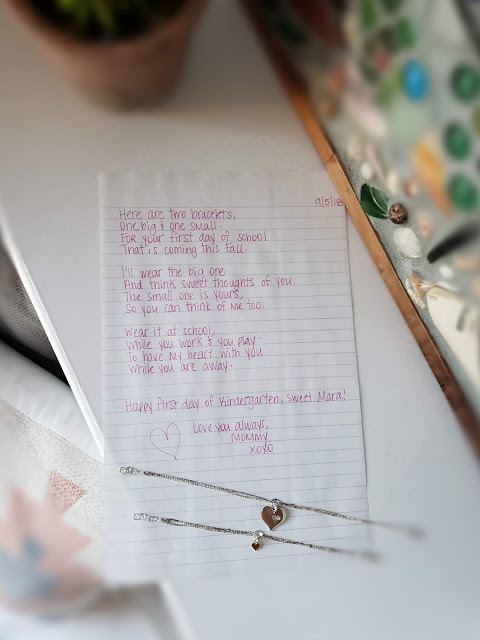 9/5/18
Here are two bracelets,
One big & one small.
For your first day of school
That is coming this Fall.
I'll wear the big one
And think sweet thoughts of you.
The small one is yours,
So you can think of me too.
Wear it at school,
While you work & you play
To have my heart with you
While you are away.
Happy first day of Kindergarten, sweet Mara!
Love you always,
MOMMY
XOXO